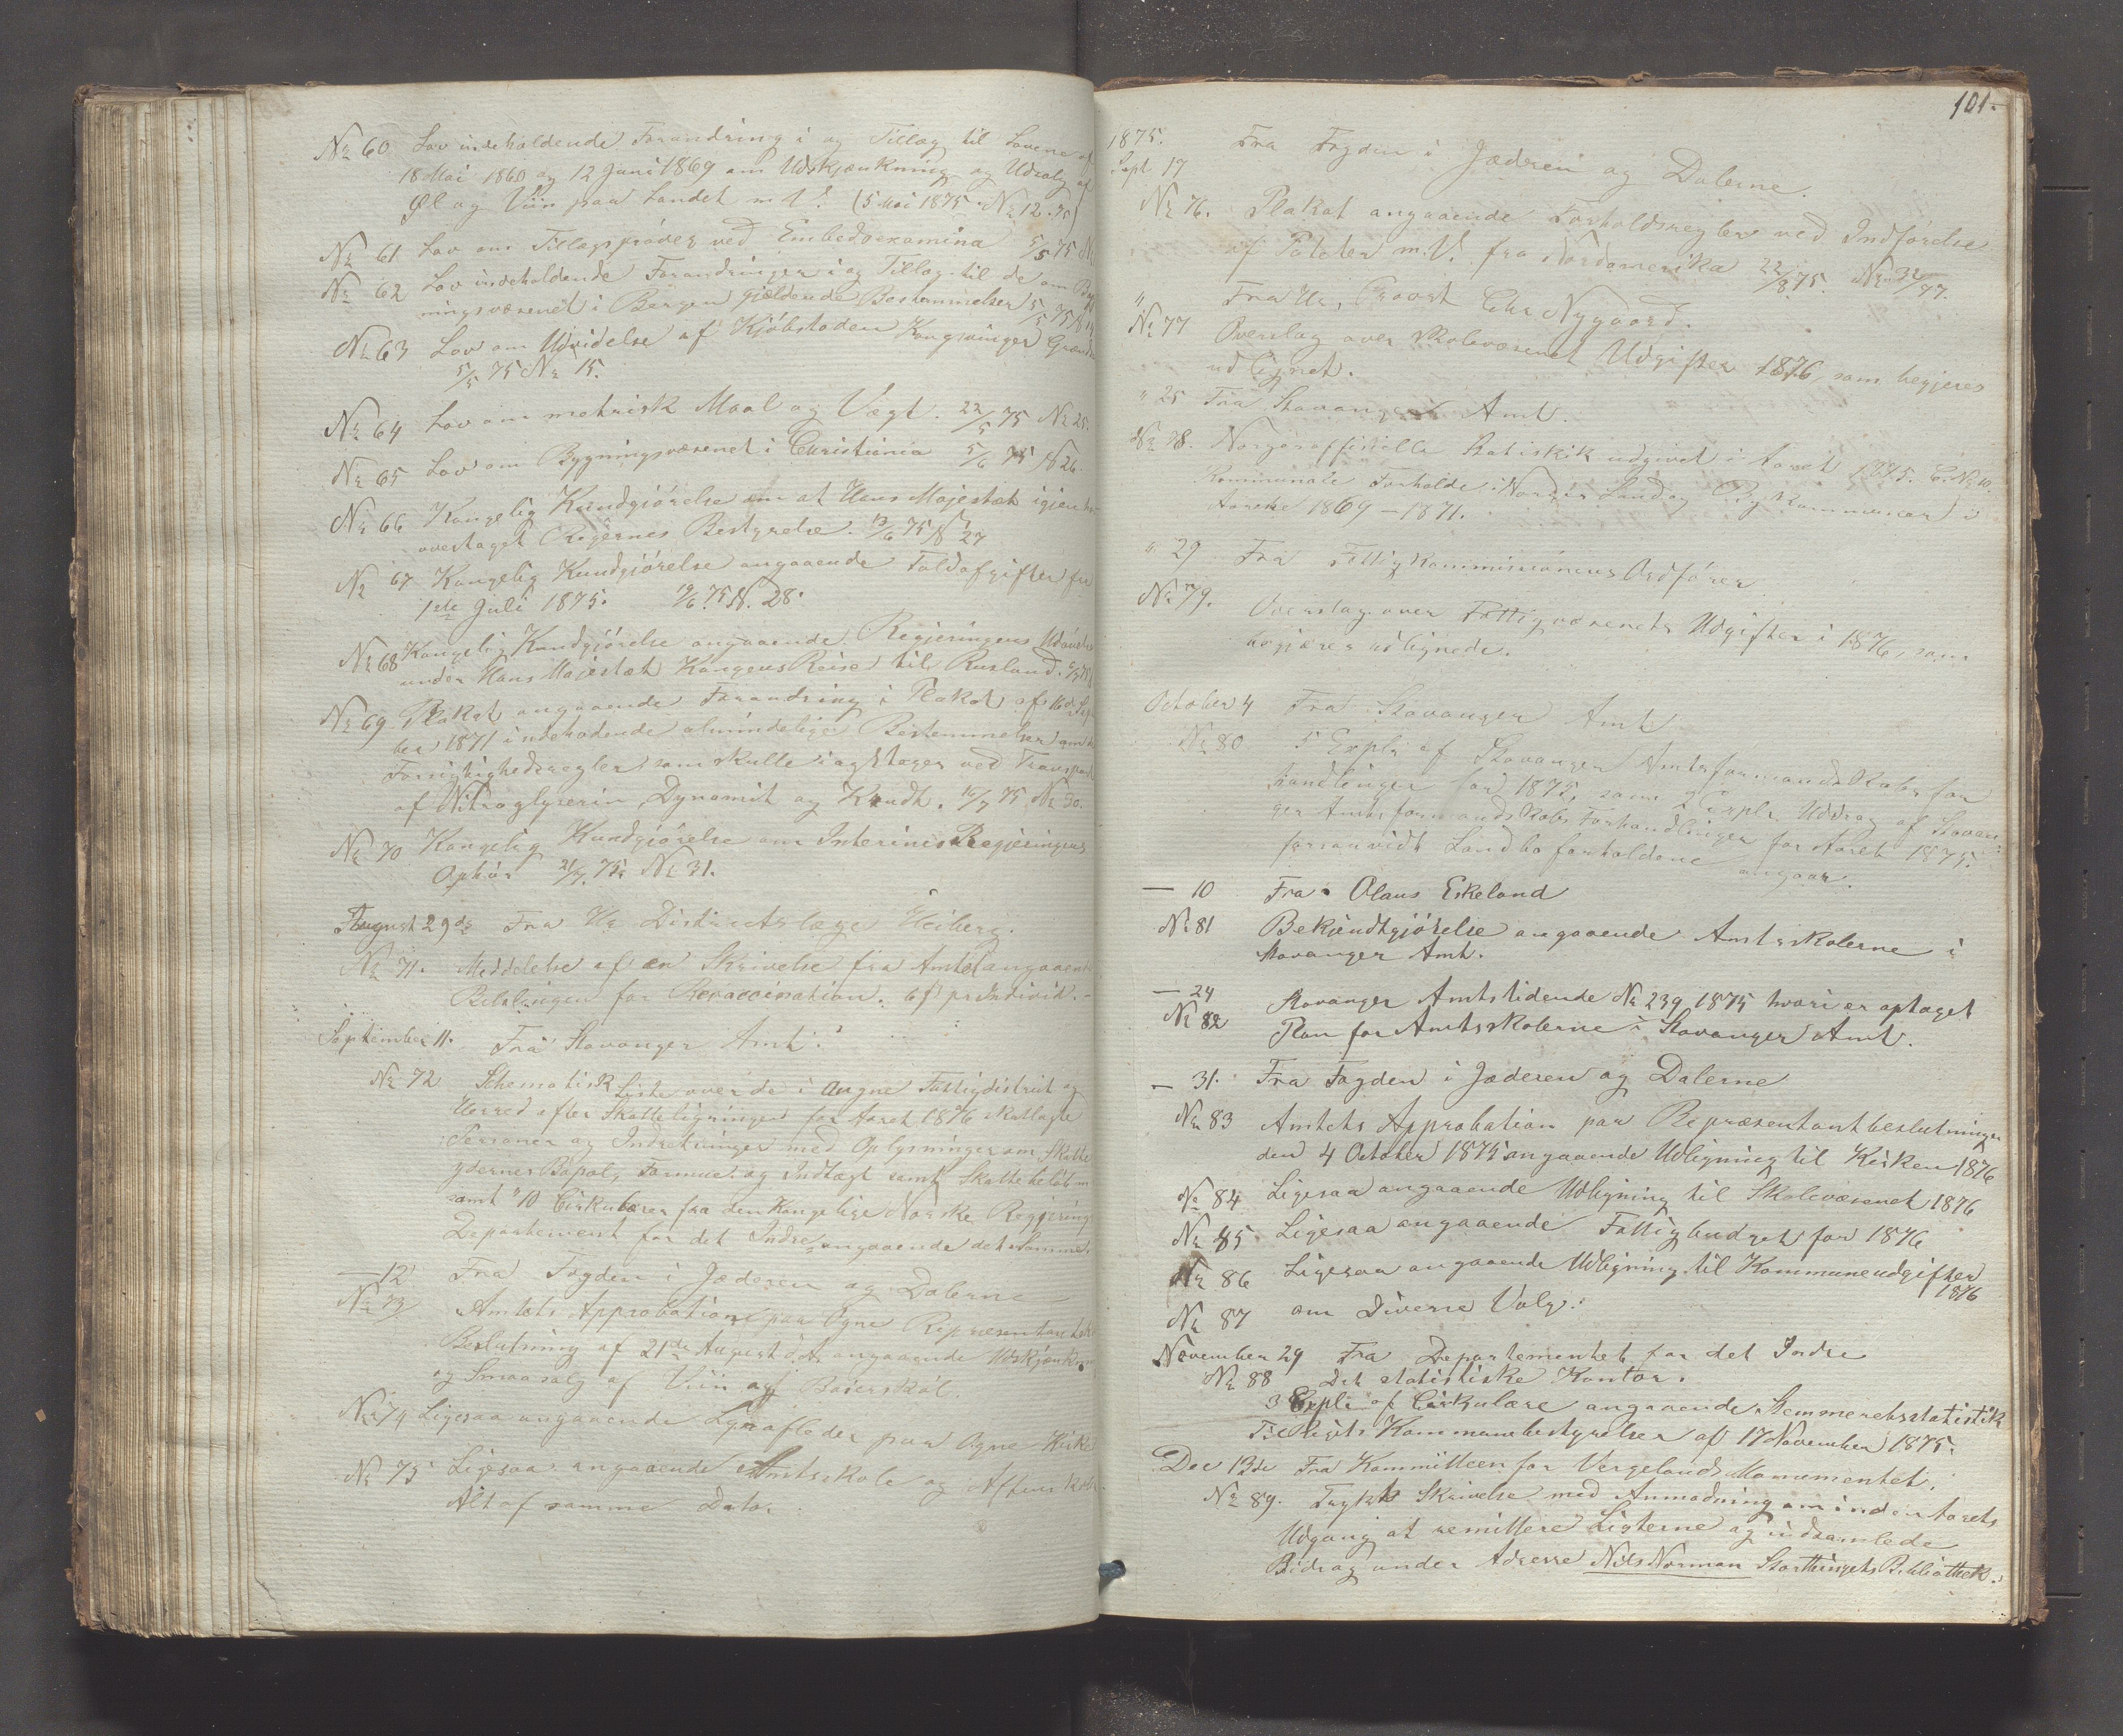 No 60 Lov indeholdende Forandring i og Tillæg til Lovene af
18 Mai 1860 og 12 Juni 1869 om Udskjænkning og Udsalg af
Øl og Viin paa Landet m. V. (5 Mai 1875. No 12. 75)
No 61 Lov om Tillægsprøver ved Embedsexamina 5/5 75 No
No 62 Lov indeholdende Forandringer i og Tillæg til de om Byg
ningsvæsenet i Bergen gjældende Bestemmelser 5/5 75 No 14
No 63 Lov om Udvidelse af Kjöbstaden Kongsvinger Grændse
5/5 75 No 15.
No 64 Lov om metrisk Maal og Vægt. 22/5 75 No 25.
No 65 Lov om Bygningsvæsenet i Christiania 5/6 75 No 26.
No 66 Kongelig Kundgjörelse om at Hans Majestæt igjen har
overtaget Rigernes Bestyrelse. 13/6 75 No 27
No 67 Kongelig Kundgjörelse angaaende Toldafgifter fra
1ste Juli 1875. 19/6 75 N. 28.
No 68 Kongelig Kundgjörelse angaaende Regjeringens Udövelse
under Hans Majestæt Kongens Reise til Rusland.
No 69 Plakat angaaende Forandring i Plakat af 16de Septem
ber 1871 indehodende almindelige Bestemmelser om de
Forsigtighedsregler som skulle iagttages ved Transport
af Nitroglyserin, Dynamit og Krudt. 16/7 75 No 30.
No 70 Kongelig Kundgjörelse om Interims Regjeringens
Ophör 21/7. 75. No 31.
August 29de Fra Hr Districtslæge Heiberg.
No 71. Meddelelse af en Skrivelse fra Amtet angaaende
Betalingen for Revaccination. 6 f pr Individ.
September 11. Fra Stavanger Amt.
No 72 Schematisk Liste over de i Augne Fattigdistrikt og
Herred efter Skatteligningen for Aaret 1876 skatlagte
Personer og Indretninger med Oplysninger om Skatte
ydernes Bopæl, Formue og Indtægt samt Skattebelöb m
samt 10 Cirkulærer fra den Kongelige Norske Regjerings
Departement for det Indre angaaende det Samme.
— 12 Fra Fogden i Jæderen og Dalerne
No 73 Amtets Approbation paa Ogne Repræsentantskabs
Beslutning af 21de August d. A. angaaende Udskjænkning
og Smaasalg af Viin og Baierskøl.
No 74 Ligesaa angaaende Lynafleder paa Ogne Kirke
No 75 Ligesaa angaaende Amtsskole og Aftenskole
Alt af samme Dato.
101.
1875.
Sept 17 Fra Fogden i Jæderen og Dalerne.
No 76. Plakat angaaende Forholdsregler ved Indförelse
af Poteter m. V. fra Nordamerika 22/8 75. No 32/77.
" Fra Hr. Provst Chr Nygaard.
No 77 Overslag over Skolevæsenet Udgifter 1876, som begjæres
udlignet.
" 25 Fra Stavanger Amt.
No 78. Norges officielle Statistik udgivet i Aaret 1875. C. No 10
Kommunale Forholde i Norges Land og Bykommuner i
Aarene 1869 — 1871.
" 29 Fra Fattigkommissionens Ordförer
No 79. Overslag over Fattigvæsenets Udgifter i 1876, som
begjæres udlignede.
October 4 Fra Stavanger Amt
No 80 5 Expl. af Stavanger Amtsformandskabs for
handlinger for 1875, samt 2 Expl. Uddrag af Stavan
ger Amtsformandskabs Forhandlinger for Aaret 1875.
forsaavidt Landboforholdene angaar.
— 10 Fra Olaus Eskeland
No 81 Bekjendtgjörelse angaaende Amtsskolerne i
Stavanger Amt.
— 24 Stavanger Amtstidende No 239, 1875 hvori er optaget
No 82 Plan for Amtsskolerne i Stavanger Amt.
— 31. Fra Fogden i Jæderen og Dalerne
No 83 Amtets Approbation paa Repræsentantbeslutninger
den 4 October 1875 angaaende Udligning til Kirken 1876
No 84 Ligesaa angaaende Udligning til Skolevæsenet 1876
No 85 Ligesaa angaaende Fattigbudget for 1876
No 86 Ligesaa angaaende Udligning til Kommuneudgifter
1876
No 87 om Diverse Valg.
November 29 Fra Departementet for det Indre
No 88 Det statistiske Kontor.
3 Expl. af Cirkulære angaaende Stemmeretsstatistik
Til Rigets Kommunebestyrelser af 17 November 1875.
Dec 13de Fra Kommitteen for Vergelands Monumentet.
No 89. Trykt Skrivelse med Anmodning om inden Aarets
Udgang at remittere Listerne og indsamlede
Bidrag under Adresse Nils Norman Storthingets Bibliothek.